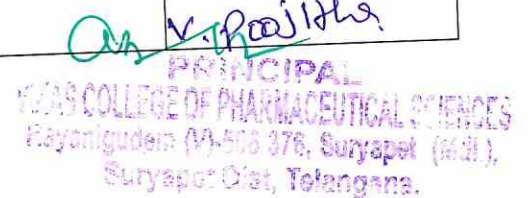 V. Poojitha
PRINCIPAL
COLLEGE OF PHARMACEUTICAL SCIENCES
Rayonigudem (V)-508 376, Suryapet (Mdl.),
Suryapet Dist, Telangana.